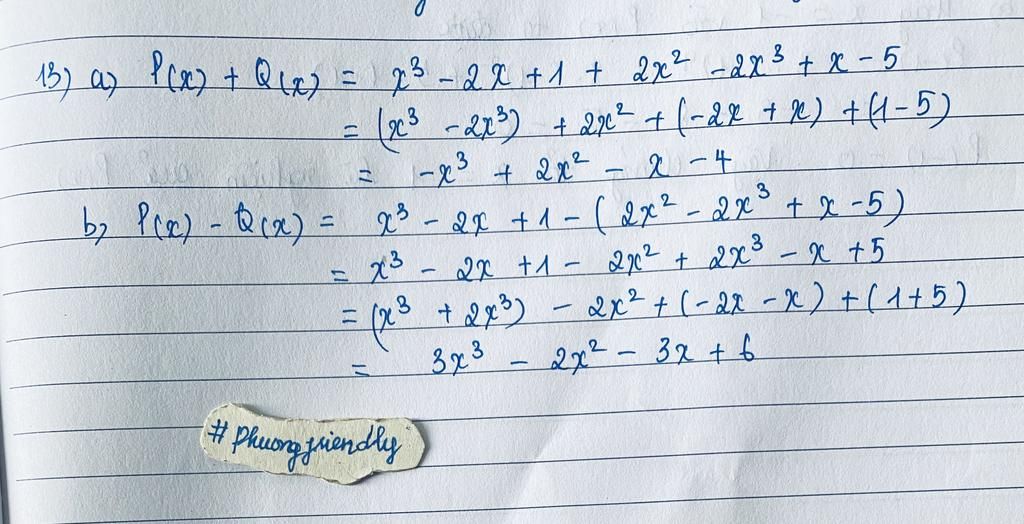 13) a) P(x) + Q(x) = x³ - 2x + 1 + 2x² - 2x³ + x - 5
= (x³ - 2x³) + 2x² + (-2x + x) + (1 - 5)
= -x³ + 2x² - x - 4
b) P(x) - Q(x) = x³ - 2x + 1 - (2x² - 2x³ + x - 5)
= x³ - 2x + 1 - 2x² + 2x³ - x + 5
= (x³ + 2x³) - 2x² + (-2x - x) + (1 + 5)
= 3x³ - 2x² - 3x + 6
#phuongfriendly